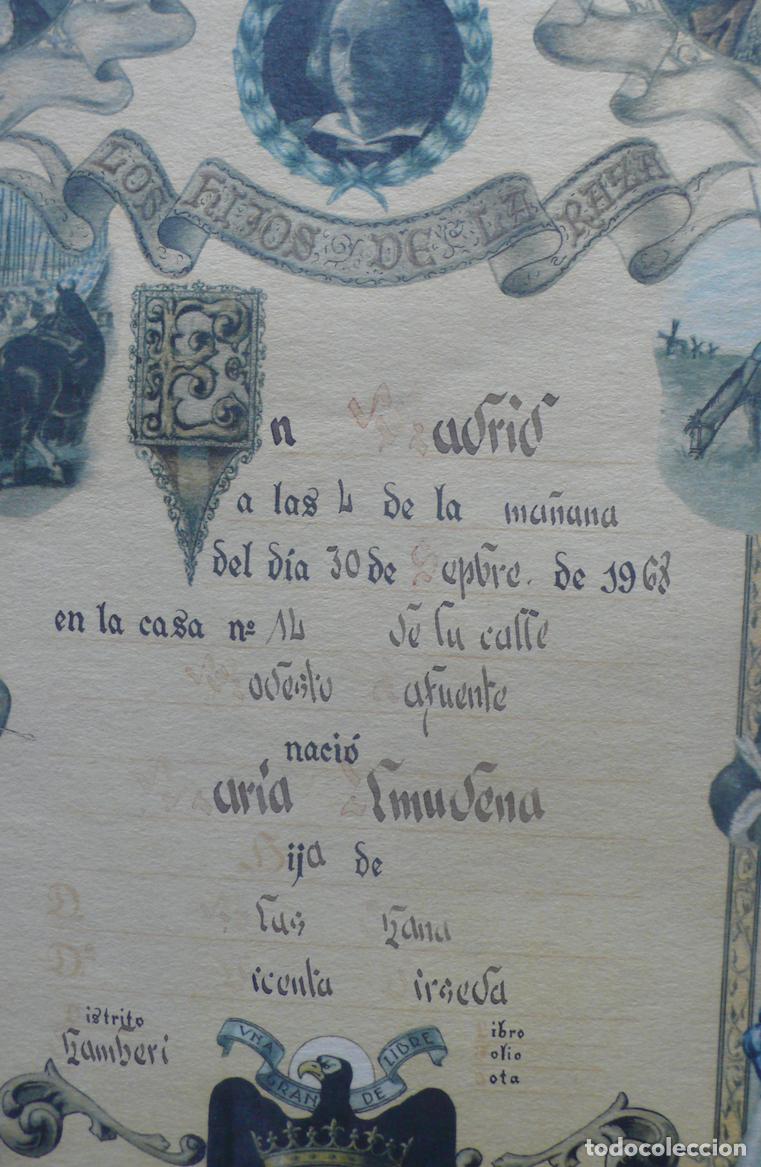 LOS HIJOS DE LA RAZA
En Madrid
a las 4 de la mañana
del día 30 de Sepbre. de 1968
en la casa nº 14 de la calle
Modesto Lafuente
nació
María Almudena
Hija de
icenta
istrito Libro
Chamberi Folio
Nota
UNA GRANDE LIBRE
todocoleccion